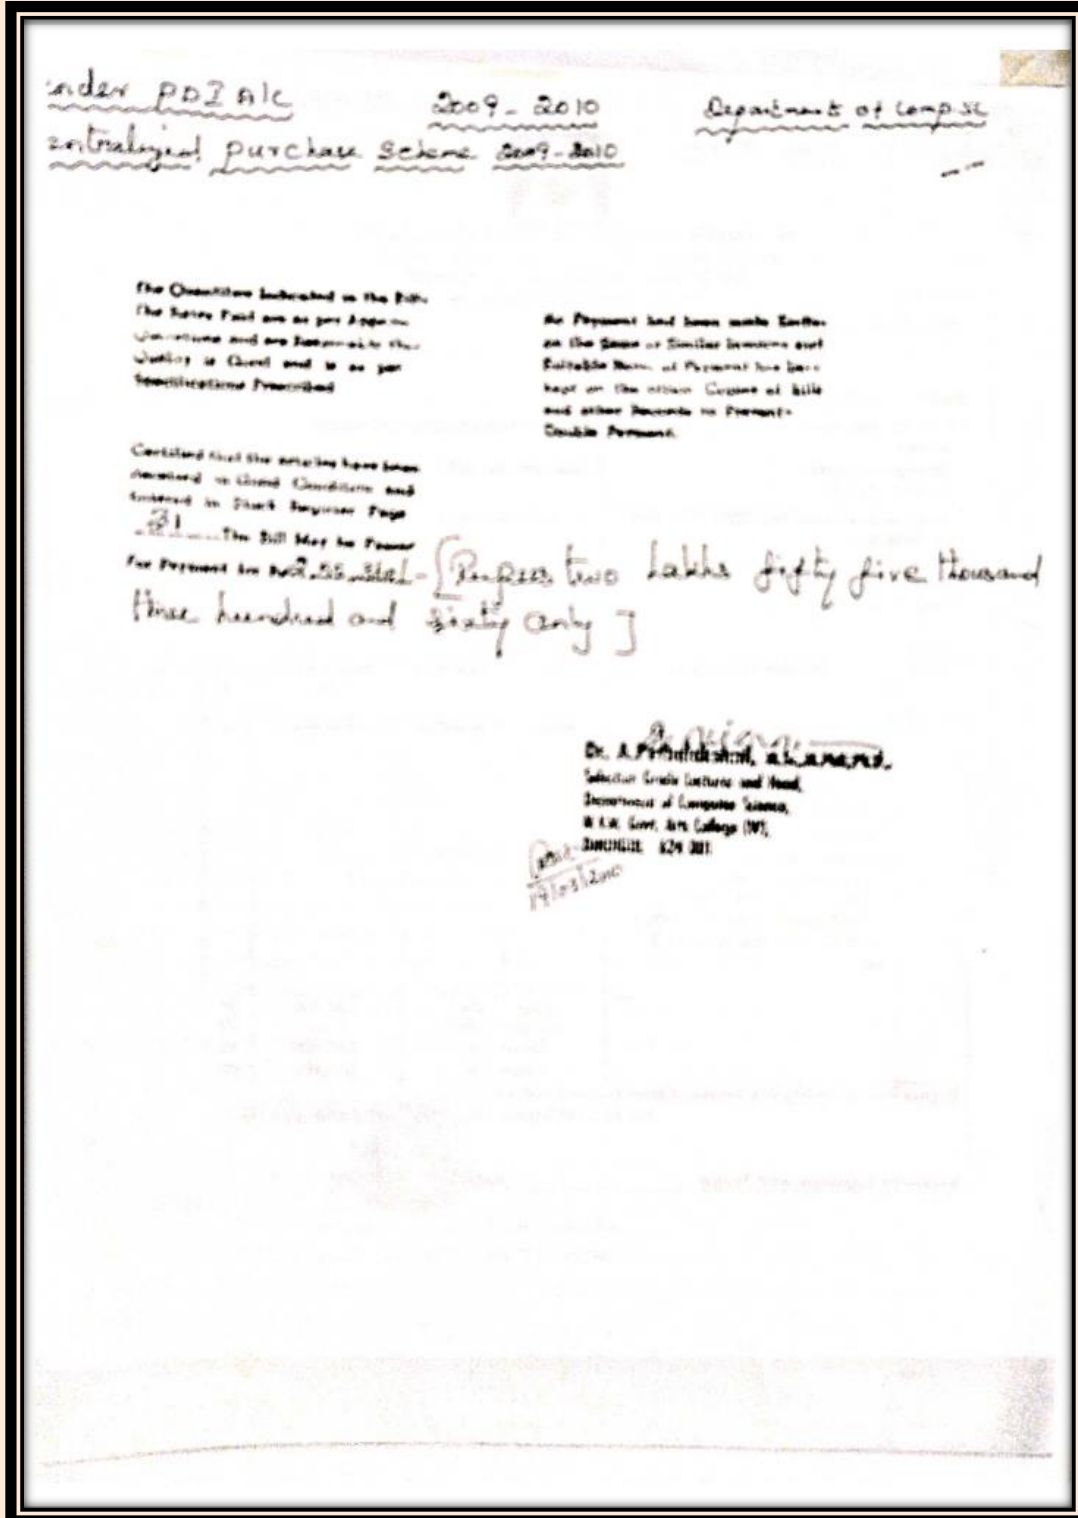 nder PDZ A/c 2009 - 2010 Department of Comp. SC
entralized purchase Scheme 2009-2010
The Quantities Indicated in the Bill
The Rates Paid are as per
and are
Quality is Good and is as per
Specifications Prescribed
No Payment had been made Earlier
on the Same or Similar Invoices and
Suitable Note of Payment has been
kept on the Copies of Bills
and other Records to Prevent-
Double Payment.
Certified that the articles have been
Received in Good Condition and
Entered in Stock Register Page
31 The Bill May be Passed
For Payment for Rs 2,55,360/- [Rupees two Lakhs fifty five thousand
three hundred and sixty Only ]
Dr. A.
Selection Grade Lecturer and Head,
Department of Computer Science,
Govt. Arts College (W),
624 001.
19/03/2010